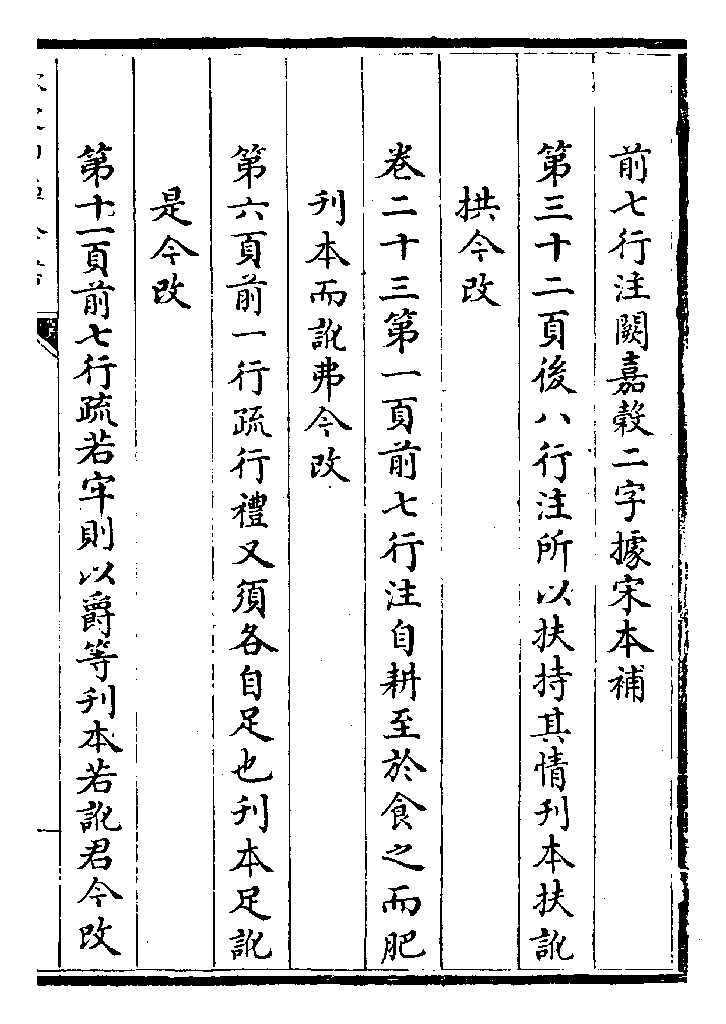 前七行注闕嘉穀二字據宋本補
第三十二頁後八行注所以扶持其情刊本扶訛
拱今改
卷二十三第一頁前七行注自耕至於食之而肥
刊本而訛弗今改
第六頁前一行疏行禮又須各自足也刊本足訛
是今改
第十一頁前七行疏若牢則以爵等刊本若訛君今改